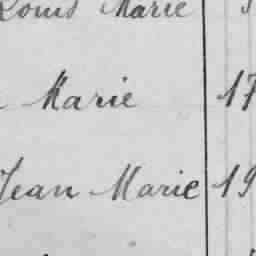 Louis Marie
Marie 17
Jean Marie 19